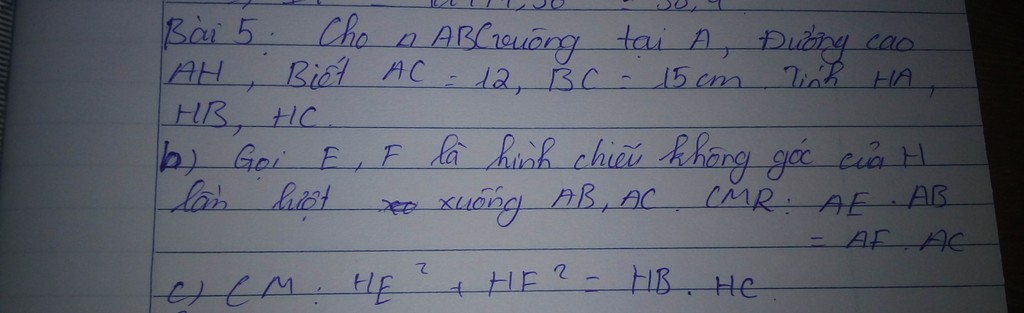 Bài 5. Cho △ ABC vuông tại A, Đường cao
AH, Biết AC = 12, BC = 15cm. Tính HA,
HB, HC.
b) Gọi E, F là hình chiếu không góc của H
lần lượt xuống AB, AC. CMR: AE . AB
= AF . AC
c) CM: HE² + HF² = HB. HC